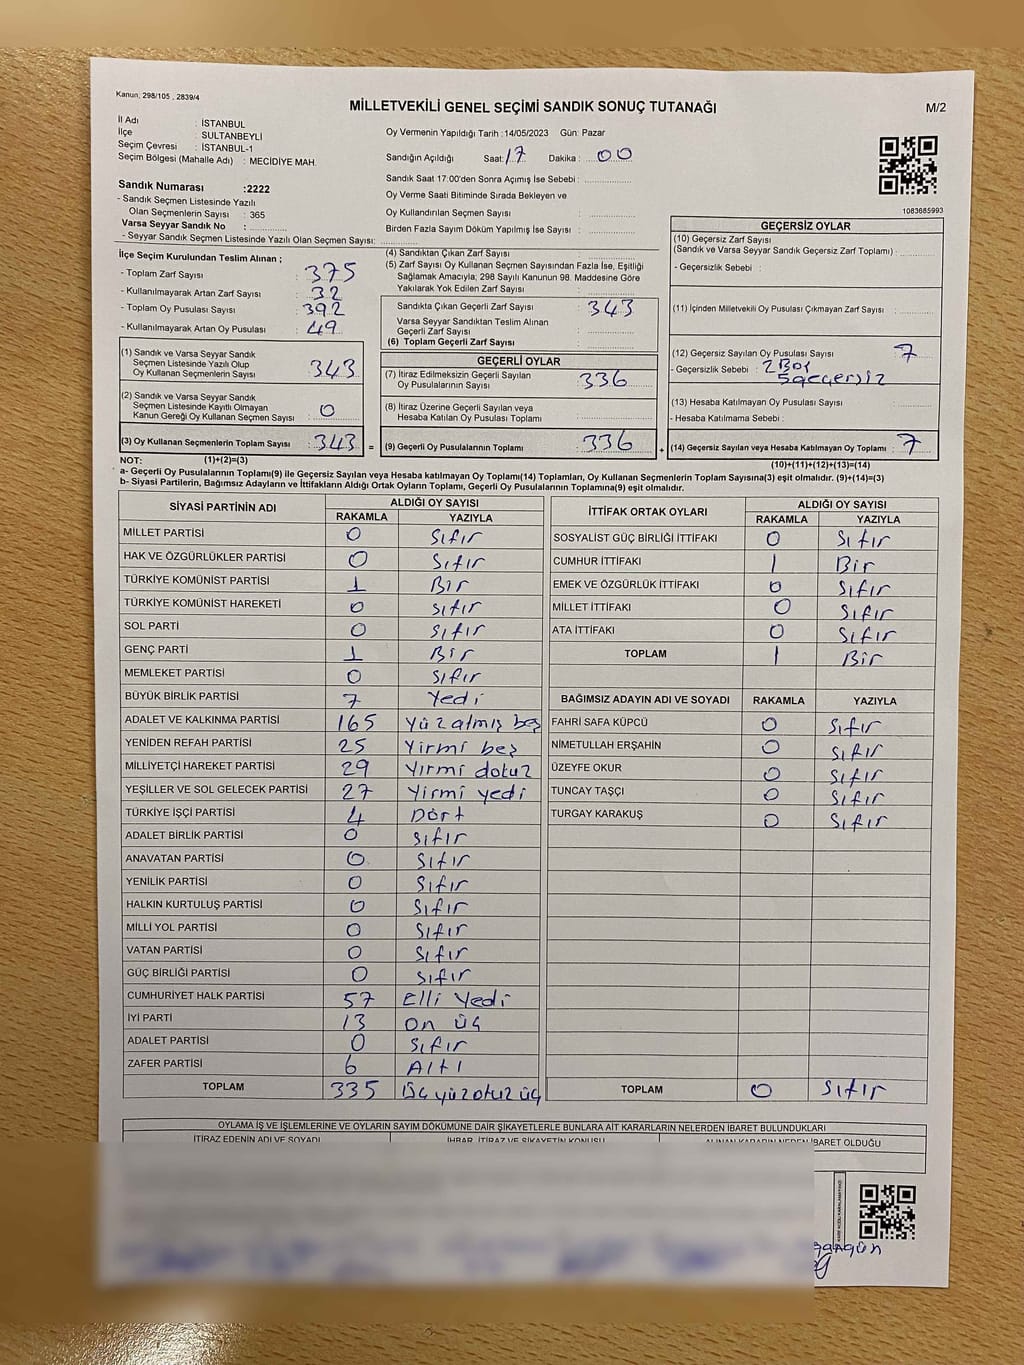 Kanun; 298/105 , 2839/4
MİLLETVEKİLİ GENEL SEÇİMİ SANDIK SONUÇ TUTANAĞI
M/2
İl Adı : İSTANBUL
İlçe : SULTANBEYLİ
Seçim Çevresi : İSTANBUL-1
Seçim Bölgesi (Mahalle Adı) : MECİDİYE MAH.
Sandık Numarası :2222
- Sandık Seçmen Listesinde Yazılı
Olan Seçmenlerin Sayısı : 365
Varsa Seyyar Sandık No :
- Seyyar Sandık Seçmen Listesinde Yazılı Olan Seçmen Sayısı:
Oy Vermenin Yapıldığı Tarih :14/05/2023 Gün: Pazar
Sandığın Açıldığı Saat: 17 Dakika : 00
Sandık Saat 17:00'den Sonra Açımış İse Sebebi :
Oy Verme Saati Bitiminde Sırada Bekleyen ve
Oy Kullandırılan Seçmen Sayısı :
Birden Fazla Sayım Döküm Yapılmış İse Sayısı :
1083685993
İlçe Seçim Kurulundan Teslim Alınan ;
- Toplam Zarf Sayısı : 375
- Kullanılmayarak Artan Zarf Sayısı : 32
- Toplam Oy Pusulası Sayısı : 392
- Kullanılmayarak Artan Oy Pusulası : 49
(1) Sandık ve Varsa Seyyar Sandık
Seçmen Listesinde Yazılı Olup
Oy Kullanan Seçmenlerin Sayısı : 343
(2) Sandık ve Varsa Seyyar Sandık
Seçmen Listesinde Kayıtlı Olmayan
Kanun Gereği Oy Kullanan Seçmen Sayısı : 0
(3) Oy Kullanan Seçmenlerin Toplam Sayısı : 343 =
(4) Sandıktan Çıkan Zarf Sayısı :
(5) Zarf Sayısı Oy Kullanan Seçmen Sayısından Fazla İse, Eşitliği
Sağlamak Amacıyla; 298 Sayılı Kanunun 98. Maddesine Göre
Yakılarak Yok Edilen Zarf Sayısı :
Sandıkta Çıkan Geçerli Zarf Sayısı : 343
Varsa Seyyar Sandıktan Teslim Alınan
Geçerli Zarf Sayısı :
(6) Toplam Geçerli Zarf Sayısı :
GEÇERLİ OYLAR
(7) İtiraz Edilmeksizin Geçerli Sayılan
Oy Pusulalarının Sayısı : 336
(8) İtiraz Üzerine Geçerli Sayılan veya
Hesaba Katılan Oy Pusulası Toplamı :
(9) Geçerli Oy Pusulalarının Toplamı : 336 +
GEÇERSİZ OYLAR
(10) Geçersiz Zarf Sayısı
(Sandık ve Varsa Seyyar Sandık Geçersiz Zarf Toplamı) :
- Geçersizlik Sebebi :
(11) İçinden Milletvekili Oy Pusulası Çıkmayan Zarf Sayısı :
(12) Geçersiz Sayılan Oy Pusulası Sayısı : 7
- Geçersizlik Sebebi : 2 Boş
5 geçersiz
(13) Hesaba Katılmayan Oy Pusulası Sayısı :
- Hesaba Katılmama Sebebi :
(14) Geçersiz Sayılan veya Hesaba Katılmayan Oy Toplamı : 7
NOT: (1)+(2)=(3)
(10)+(11)+(12)+(13)=(14)
a- Geçerli Oy Pusulalarının Toplamı(9) ile Geçersiz Sayılan veya Hesaba katılmayan Oy Toplamı(14) Toplamları, Oy Kullanan Seçmenlerin Toplam Sayısına(3) eşit olmalıdır. (9)+(14)=(3)
b- Siyasi Partilerin, Bağımsız Adayların ve İttifakların Aldığı Ortak Oyların Toplamı, Geçerli Oy Pusulalarının Toplamına(9) eşit olmalıdır.
SİYASİ PARTİNİN ADI
ALDIĞI OY SAYISI
RAKAMLA YAZIYLA
MİLLET PARTİSİ 0 Sıfır
HAK VE ÖZGÜRLÜKLER PARTİSİ 0 Sıfır
TÜRKİYE KOMÜNİST PARTİSİ 1 Bir
TÜRKİYE KOMÜNİST HAREKETİ 0 Sıfır
SOL PARTİ 0 Sıfır
GENÇ PARTİ 1 Bir
MEMLEKET PARTİSİ 0 Sıfır
BÜYÜK BİRLİK PARTİSİ 7 Yedi
ADALET VE KALKINMA PARTİSİ 165 Yüz atmış beş
YENİDEN REFAH PARTİSİ 25 Yirmi beş
MİLLİYETÇİ HAREKET PARTİSİ 29 Yırmı dokuz
YEŞİLLER VE SOL GELECEK PARTİSİ 27 Yirmi yedi
TÜRKİYE İŞÇİ PARTİSİ 4 Dört
ADALET BİRLİK PARTİSİ 0 Sıfır
ANAVATAN PARTİSİ 0 Sıfır
YENİLİK PARTİSİ 0 Sıfır
HALKIN KURTULUŞ PARTİSİ 0 Sıfır
MİLLİ YOL PARTİSİ 0 Sıfır
VATAN PARTİSİ 0 Sıfır
GÜÇ BİRLİĞİ PARTİSİ 0 Sıfır
CUMHURİYET HALK PARTİSİ 57 Elli Yedi
İYİ PARTİ 13 On üç
ADALET PARTİSİ 0 Sıfır
ZAFER PARTİSİ 6 Altı
TOPLAM 335 Üç yüz otuz üç
İTTİFAK ORTAK OYLARI
ALDIĞI OY SAYISI
RAKAMLA YAZIYLA
SOSYALİST GÜÇ BİRLİĞİ İTTİFAKI 0 Sıfır
CUMHUR İTTİFAKI 1 Bir
EMEK VE ÖZGÜRLÜK İTTİFAKI 0 Sıfır
MİLLET İTTİFAKI 0 Sıfır
ATA İTTİFAKI 0 Sıfır
TOPLAM 1 Bir
BAĞIMSIZ ADAYIN ADI VE SOYADI RAKAMLA YAZIYLA
FAHRİ SAFA KÜPCÜ 0 Sıfır
NİMETULLAH ERŞAHİN 0 Sıfır
ÜZEYFE OKUR 0 Sıfır
TUNCAY TAŞÇI 0 Sıfır
TURGAY KARAKUŞ 0 Sıfır
TOPLAM 0 Sıfır
OYLAMA İŞ VE İŞLEMLERİNE VE OYLARIN SAYIM DÖKÜMÜNE DAİR ŞİKAYETLERLE BUNLARA AİT KARARLARIN NELERDEN İBARET BULUNDUKLARI
İTİRAZ EDENİN ADI VE SOYADI İHBAR, İTİRAZ VE ŞİKAYETİN KONUSU ALINAN KARARIN NEDEN İBARET OLDUĞU